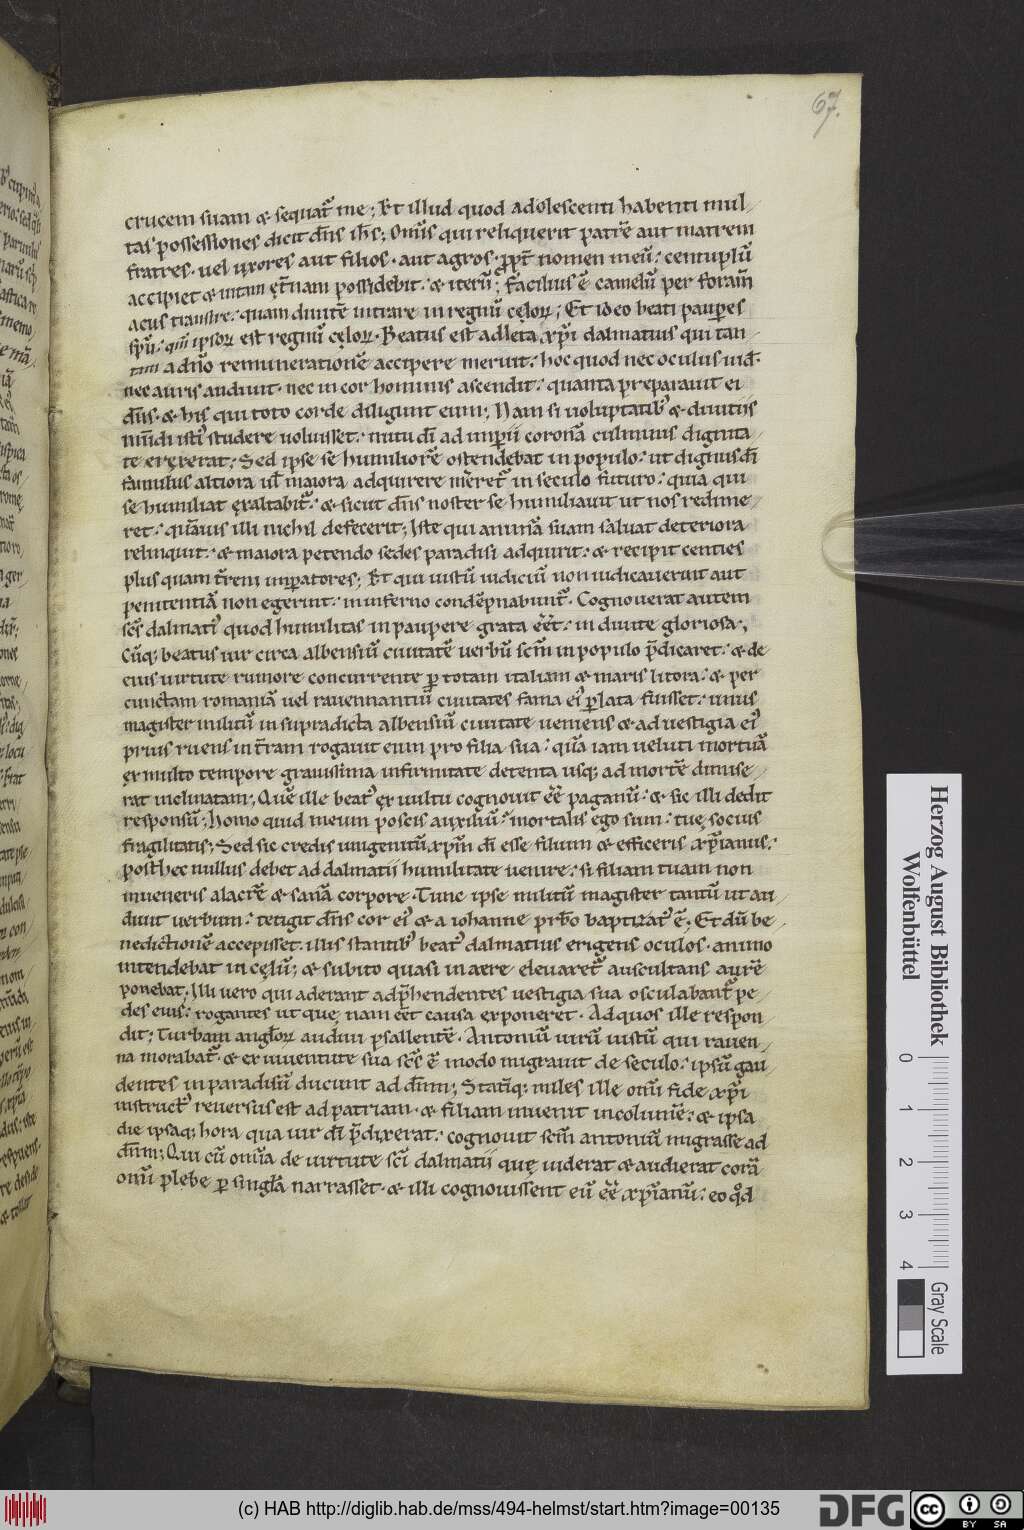 67.
crucem suam & sequat᷑ me; Et illud quod adolescenti habenti mul
tas possessiones dicit dn̄s ih̄s; Om̄s qui reliquerit patrē aut matrem
fratres. uel uxores aut filios. aut agros. ꝓpt̄ nomen meū: centuplū
accipiet & uitam ęt̄nam possidebit. & iterū; facilius ē camelū per foram̄
acus transire. quam diuitē intrare in regnū cęloꝝ; Et ideo beati pauꝑes
spū: qm̄ ipsoꝝ est regnū cęloꝝ. Beatus est adleta xp̄i dalmatius qui tan
tam a dn̄o remunerationē accipere meruit: hoc quod nec oculus uid.
nec auris audiuit. nec in cor hominis ascendit: quanta preparauit ei
dn̄s. & his qui toto corde diligunt eum; Nam si uoluptatib; & diuitiis
mundi isti᾽ studere uoluisset. nutu dī ad imꝑii coronā culminis dignita
te erexerat; Sed ipse se humiliorē ostendebat in populo: ut dignus dī
famulus altiora ul̄ maiora adquirere meret᷑ in seculo futuro: quia qui
se humiliat exaltabit᷑: & sicut dn̄s noster se humiliauit ut nos redime
ret: quāuis illi nichil defecerit; Iste qui animā suam saluat deteriora
relinquit: & maiora petendo sedes paradisi adquirit: & recipit centies
plus quam t̄reni imꝑatores; Et qui iustū iudiciū non iudicauerint aut
penitentiā non egerint: in inferno condēpnabunt᷑. Cognouerat autem
sc̄s dalmati᾽ quod humilitas in paupere grata eēt: in diuite gloriosa;
Cūq; beatus uir circa albensiū ciuitatē uerbū sc̄m in populo p̄dicaret: & de
cuius uirtute rumore concurrente ꝑ totam italiam & maris litora: & per
cunctam romaniā uel rauennantiū ciuitates fama ei᾽ ꝑlata fuisset: unus
magister militū in supradicta albensiū ciuitate ueniens & ad uestigia ei᾽
prius ruens in t̄ram rogauit eum pro filia sua: quā iam ueluti mortuā
ex multo tempore grauissima infirmitate detenta usq; ad mortē dimise
rat inclinatam; Quē ille beat᾽ ex uultu cognouit eē paganū: & sic illi dedit
responsū; Homo quid meum poscis auxiliū: mortalis ego sum: tuę socius
fragilitatis; Sed sic credis unigenitū xp̄m dī esse filium & efficeris xp̄ianus:
posthec nullus debet ad dalmatii humilitate uenire: si filiam tuam non
inueneris alacrē & sanā corpore. Tunc ipse militū magister tantū ut au
diuit uerbum: tetigit dn̄s cor ei᾽ & a iohanne prb̄o baptizat᾽ ē; Et dū be
nedictionē accepisset. illis stantib; beat᾽ dalmatius erigens oculos. animo
intendebat in cęlū; & subito quasi in aere eleuaret᷑ auscultans aurē
ponebat; Illi uero qui aderant adp̄hendentes uestigia sua osculabant᷑ pe
des eius: rogantes ut quę nam eēt causa exponeret. Ad quos ille respon
dit; Turbam angl̄oꝝ audiui psallentē. Antoniū uirū iustū qui rauen
na morabat᷑. & ex iuuentute sua sc̄s ē modo migrauit de seculo: ipsū gau
dentes in paradisū ducunt ad dn̄m; Statīq; miles ille om̄i fide xp̄i
instruct᾽ reuersus est ad patriam. & filiam inuenit incolumē: & ipsa
die ipsaq; hora qua uir dī p̄dixerat: cognouit sc̄m antoniū migrasse ad
dn̄m; Qui cū omīa de uirtute sc̄i dalmatii quę uiderat & audierat corā
om̄i plebe ꝑ singl̄a narrasset. & illi cognouissent eū eē xp̄ianū: eo qd̄
Herzog August Bibliothek
Wolfenbüttel
0
1
2
3
4
Gray Scale
(c) HAB http://diglib.hab.de/mss/494-helmst/start.htm?image=00135
DFG
cc
BY SA